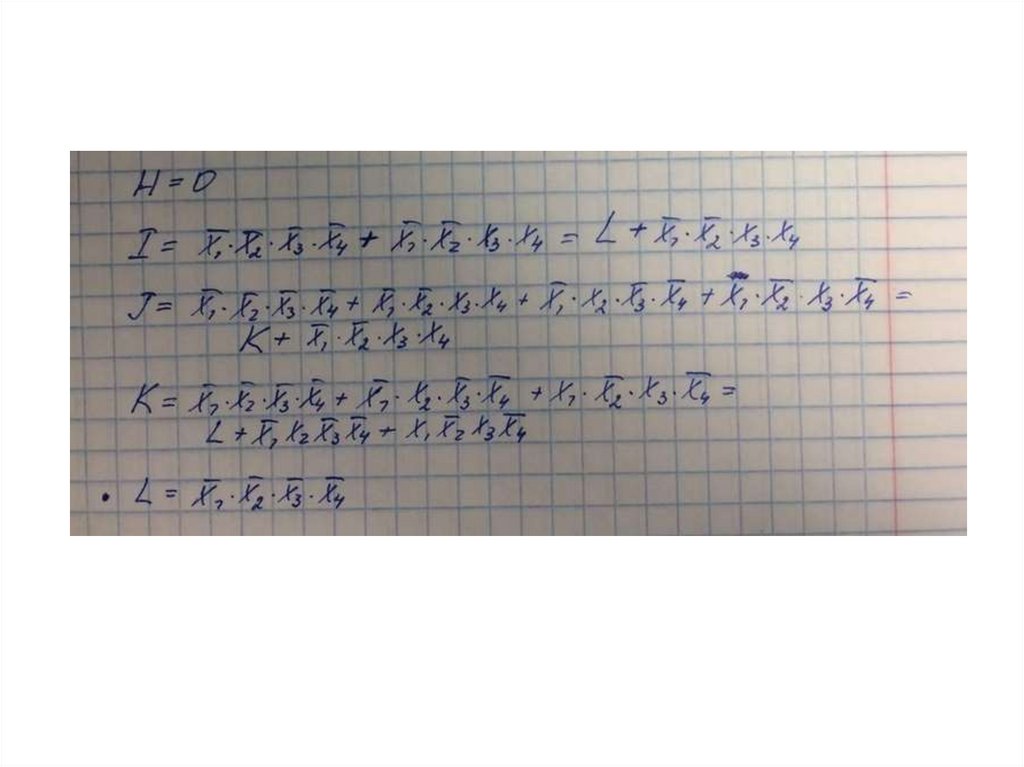 H = 0
I = x̄₁·x̄₂·x̄₃·x̄₄ + x̄₁·x̄₂·x₃·x₄ = L + x̄₁·x̄₂·x₃·x₄
J = x̄₁·x̄₂·x̄₃·x̄₄ + x̄₁·x̄₂·x₃·x₄ + x̄₁·x₂·x̄₃·x̄₄ + x̄₁·x̄₂·x₃·x̄₄ =
K + x̄₁·x̄₂·x₃·x₄
K = x̄₁·x̄₂·x̄₃·x̄₄ + x̄₁·x₂·x̄₃·x̄₄ + x₁·x̄₂·x₃·x̄₄ =
L + x̄₁x₂x̄₃x̄₄ + x₁x̄₂x₃x̄₄
• L = x̄₁·x̄₂·x̄₃·x̄₄